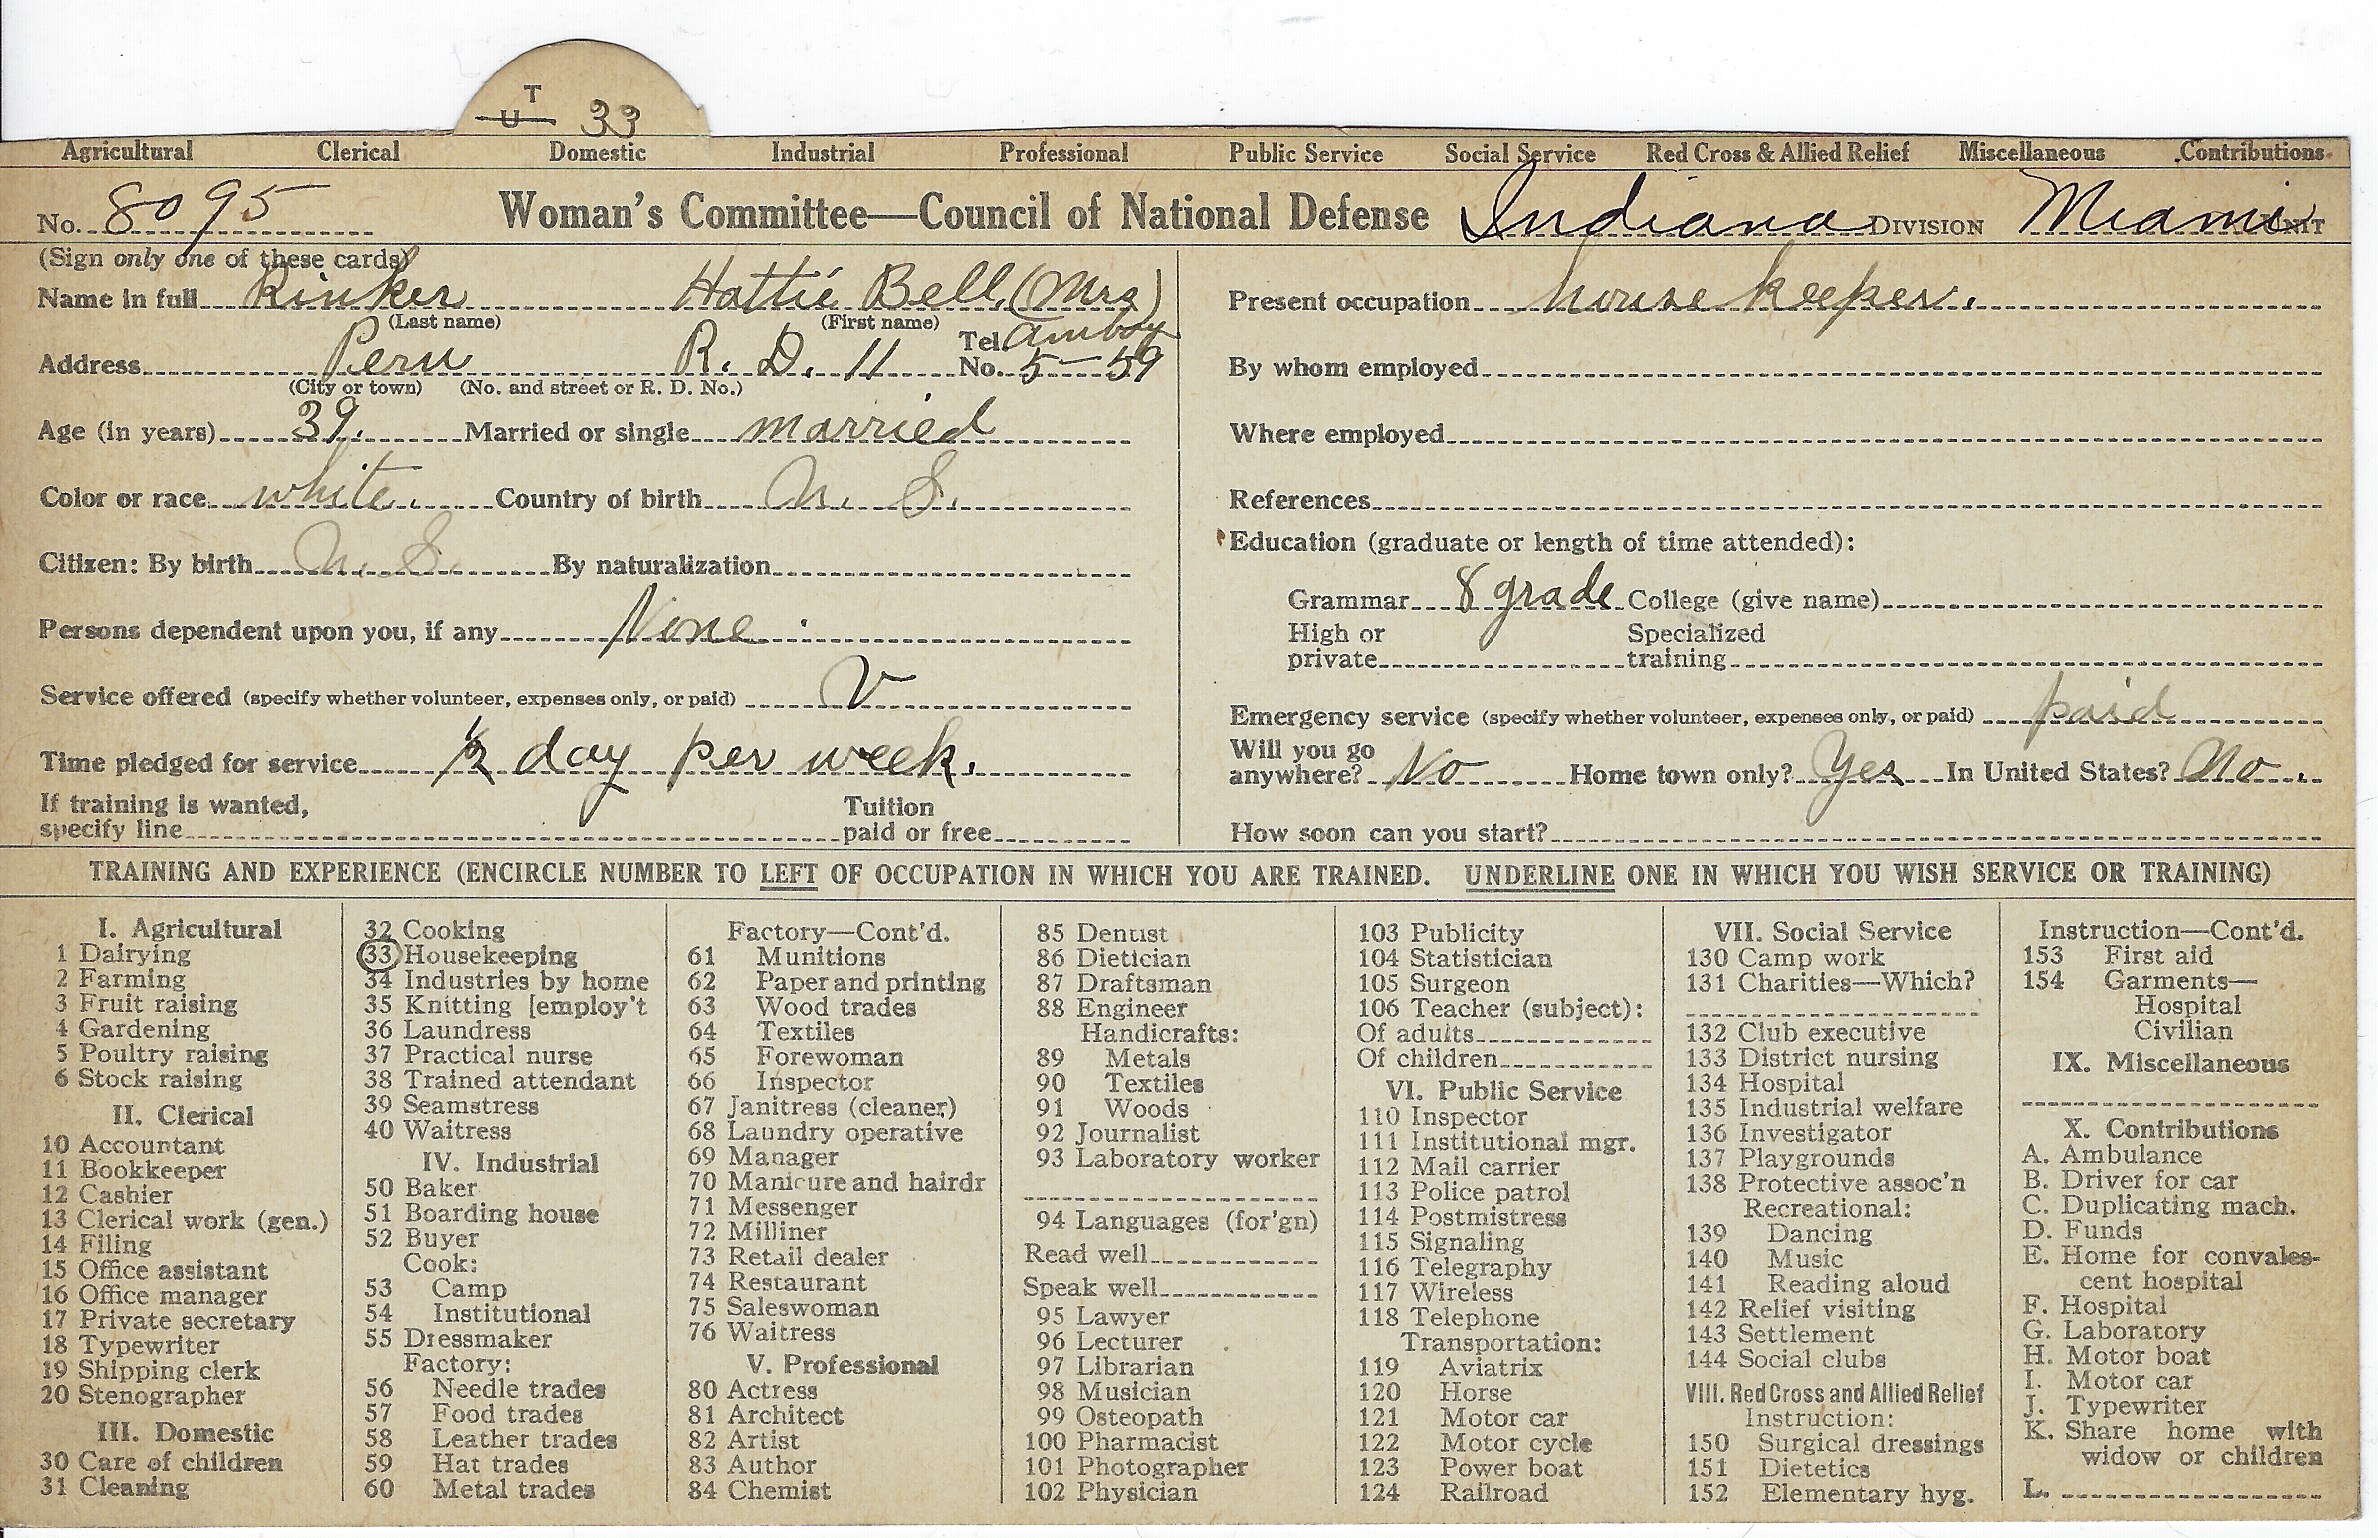 T
U 33
Agricultural Clerical Domestic Industrial Professional Public Service Social Service Red Cross & Allied Relief Miscellaneous Contributions
No. 8095 Woman's Committee—Council of National Defense Indiana DIVISION Miami UNIT
(Sign only one of these cards)
Name in full Rinker Hattie Bell, (Mrs)
(Last name) (First name)
Address Peru R. D. 11 Tel. No. Amboy 5-59
(City or town) (No. and street or R. D. No.)
Age (in years) 39. Married or single married
Color or race white. Country of birth U. S.
Citizen: By birth U. S. By naturalization
Persons dependent upon you, if any None
Service offered (specify whether volunteer, expenses only, or paid) V
Time pledged for service 1/2 day per week.
If training is wanted, specify line Tuition paid or free
Present occupation house keeper.
By whom employed
Where employed
References
Education (graduate or length of time attended):
Grammar 8 grade College (give name)
High or private Specialized training
Emergency service (specify whether volunteer, expenses only, or paid) paid
Will you go anywhere? No Home town only? Yes In United States? No.
How soon can you start?
TRAINING AND EXPERIENCE (ENCIRCLE NUMBER TO LEFT OF OCCUPATION IN WHICH YOU ARE TRAINED. UNDERLINE ONE IN WHICH YOU WISH SERVICE OR TRAINING)
I. Agricultural
1 Dairying
2 Farming
3 Fruit raising
4 Gardening
5 Poultry raising
6 Stock raising
II. Clerical
10 Accountant
11 Bookkeeper
12 Cashier
13 Clerical work (gen.)
14 Filing
15 Office assistant
16 Office manager
17 Private secretary
18 Typewriter
19 Shipping clerk
20 Stenographer
III. Domestic
30 Care of children
31 Cleaning
32 Cooking
33 Housekeeping
34 Industries by home
35 Knitting [employ't
36 Laundress
37 Practical nurse
38 Trained attendant
39 Seamstress
40 Waitress
IV. Industrial
50 Baker
51 Boarding house
52 Buyer
Cook:
53 Camp
54 Institutional
55 Dressmaker
Factory:
56 Needle trades
57 Food trades
58 Leather trades
59 Hat trades
60 Metal trades
Factory—Cont'd.
61 Munitions
62 Paper and printing
63 Wood trades
64 Textiles
65 Forewoman
66 Inspector
67 Janitress (cleaner)
68 Laundry operative
69 Manager
70 Manicure and hairdr
71 Messenger
72 Milliner
73 Retail dealer
74 Restaurant
75 Saleswoman
76 Waitress
V. Professional
80 Actress
81 Architect
82 Artist
83 Author
84 Chemist
85 Dentist
86 Dietician
87 Draftsman
88 Engineer
Handicrafts:
89 Metals
90 Textiles
91 Woods
92 Journalist
93 Laboratory worker
94 Languages (for'gn)
Read well
Speak well
95 Lawyer
96 Lecturer
97 Librarian
98 Musician
99 Osteopath
100 Pharmacist
101 Photographer
102 Physician
103 Publicity
104 Statistician
105 Surgeon
106 Teacher (subject):
Of adults
Of children
VI. Public Service
110 Inspector
111 Institutional mgr.
112 Mail carrier
113 Police patrol
114 Postmistress
115 Signaling
116 Telegraphy
117 Wireless
118 Telephone
Transportation:
119 Aviatrix
120 Horse
121 Motor car
122 Motor cycle
123 Power boat
124 Railroad
VII. Social Service
130 Camp work
131 Charities—Which?
132 Club executive
133 District nursing
134 Hospital
135 Industrial welfare
136 Investigator
137 Playgrounds
138 Protective assoc'n
Recreational:
139 Dancing
140 Music
141 Reading aloud
142 Relief visiting
143 Settlement
144 Social clubs
VIII. Red Cross and Allied Relief
Instruction:
150 Surgical dressings
151 Dietetics
152 Elementary hyg.
Instruction—Cont'd.
153 First aid
154 Garments—
Hospital
Civilian
IX. Miscellaneous
X. Contributions
A. Ambulance
B. Driver for car
C. Duplicating mach.
D. Funds
E. Home for convales-
cent hospital
F. Hospital
G. Laboratory
H. Motor boat
I. Motor car
J. Typewriter
K. Share home with
widow or children
L.